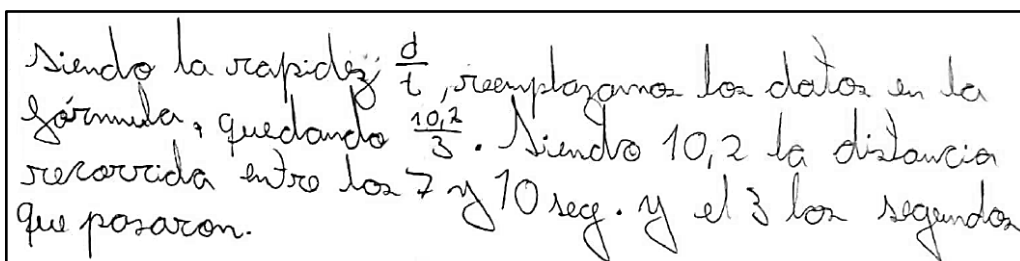 Siendo la rapidez; d/t, reemplazamos los datos en la
fórmula, quedando 10,2/3. Siendo 10,2 la distancia
recorrida entre los 7 y 10 seg. y el 3 los segundos
que pasaron.